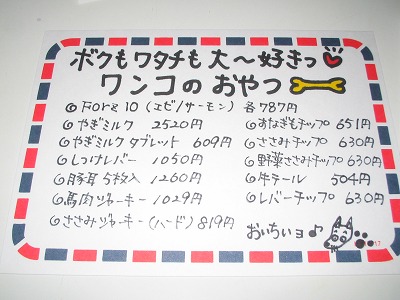 ボクもワタチも大〜好きっ
ワンコのおやつ
Fore10(エビ/サーモン) 各787円
やぎミルク 2520円
やぎミルクタブレット 609円
しつけレバー 1050円
豚耳5枚入 1260円
馬肉ジャーキー 1029円
ささみジャーキー(ハード) 819円
あなぎもチップ 651円
ささみチップ 630円
野菜ささみチップ 630円
牛テール 504円
レバーチップ 630円
おいちいョ♪